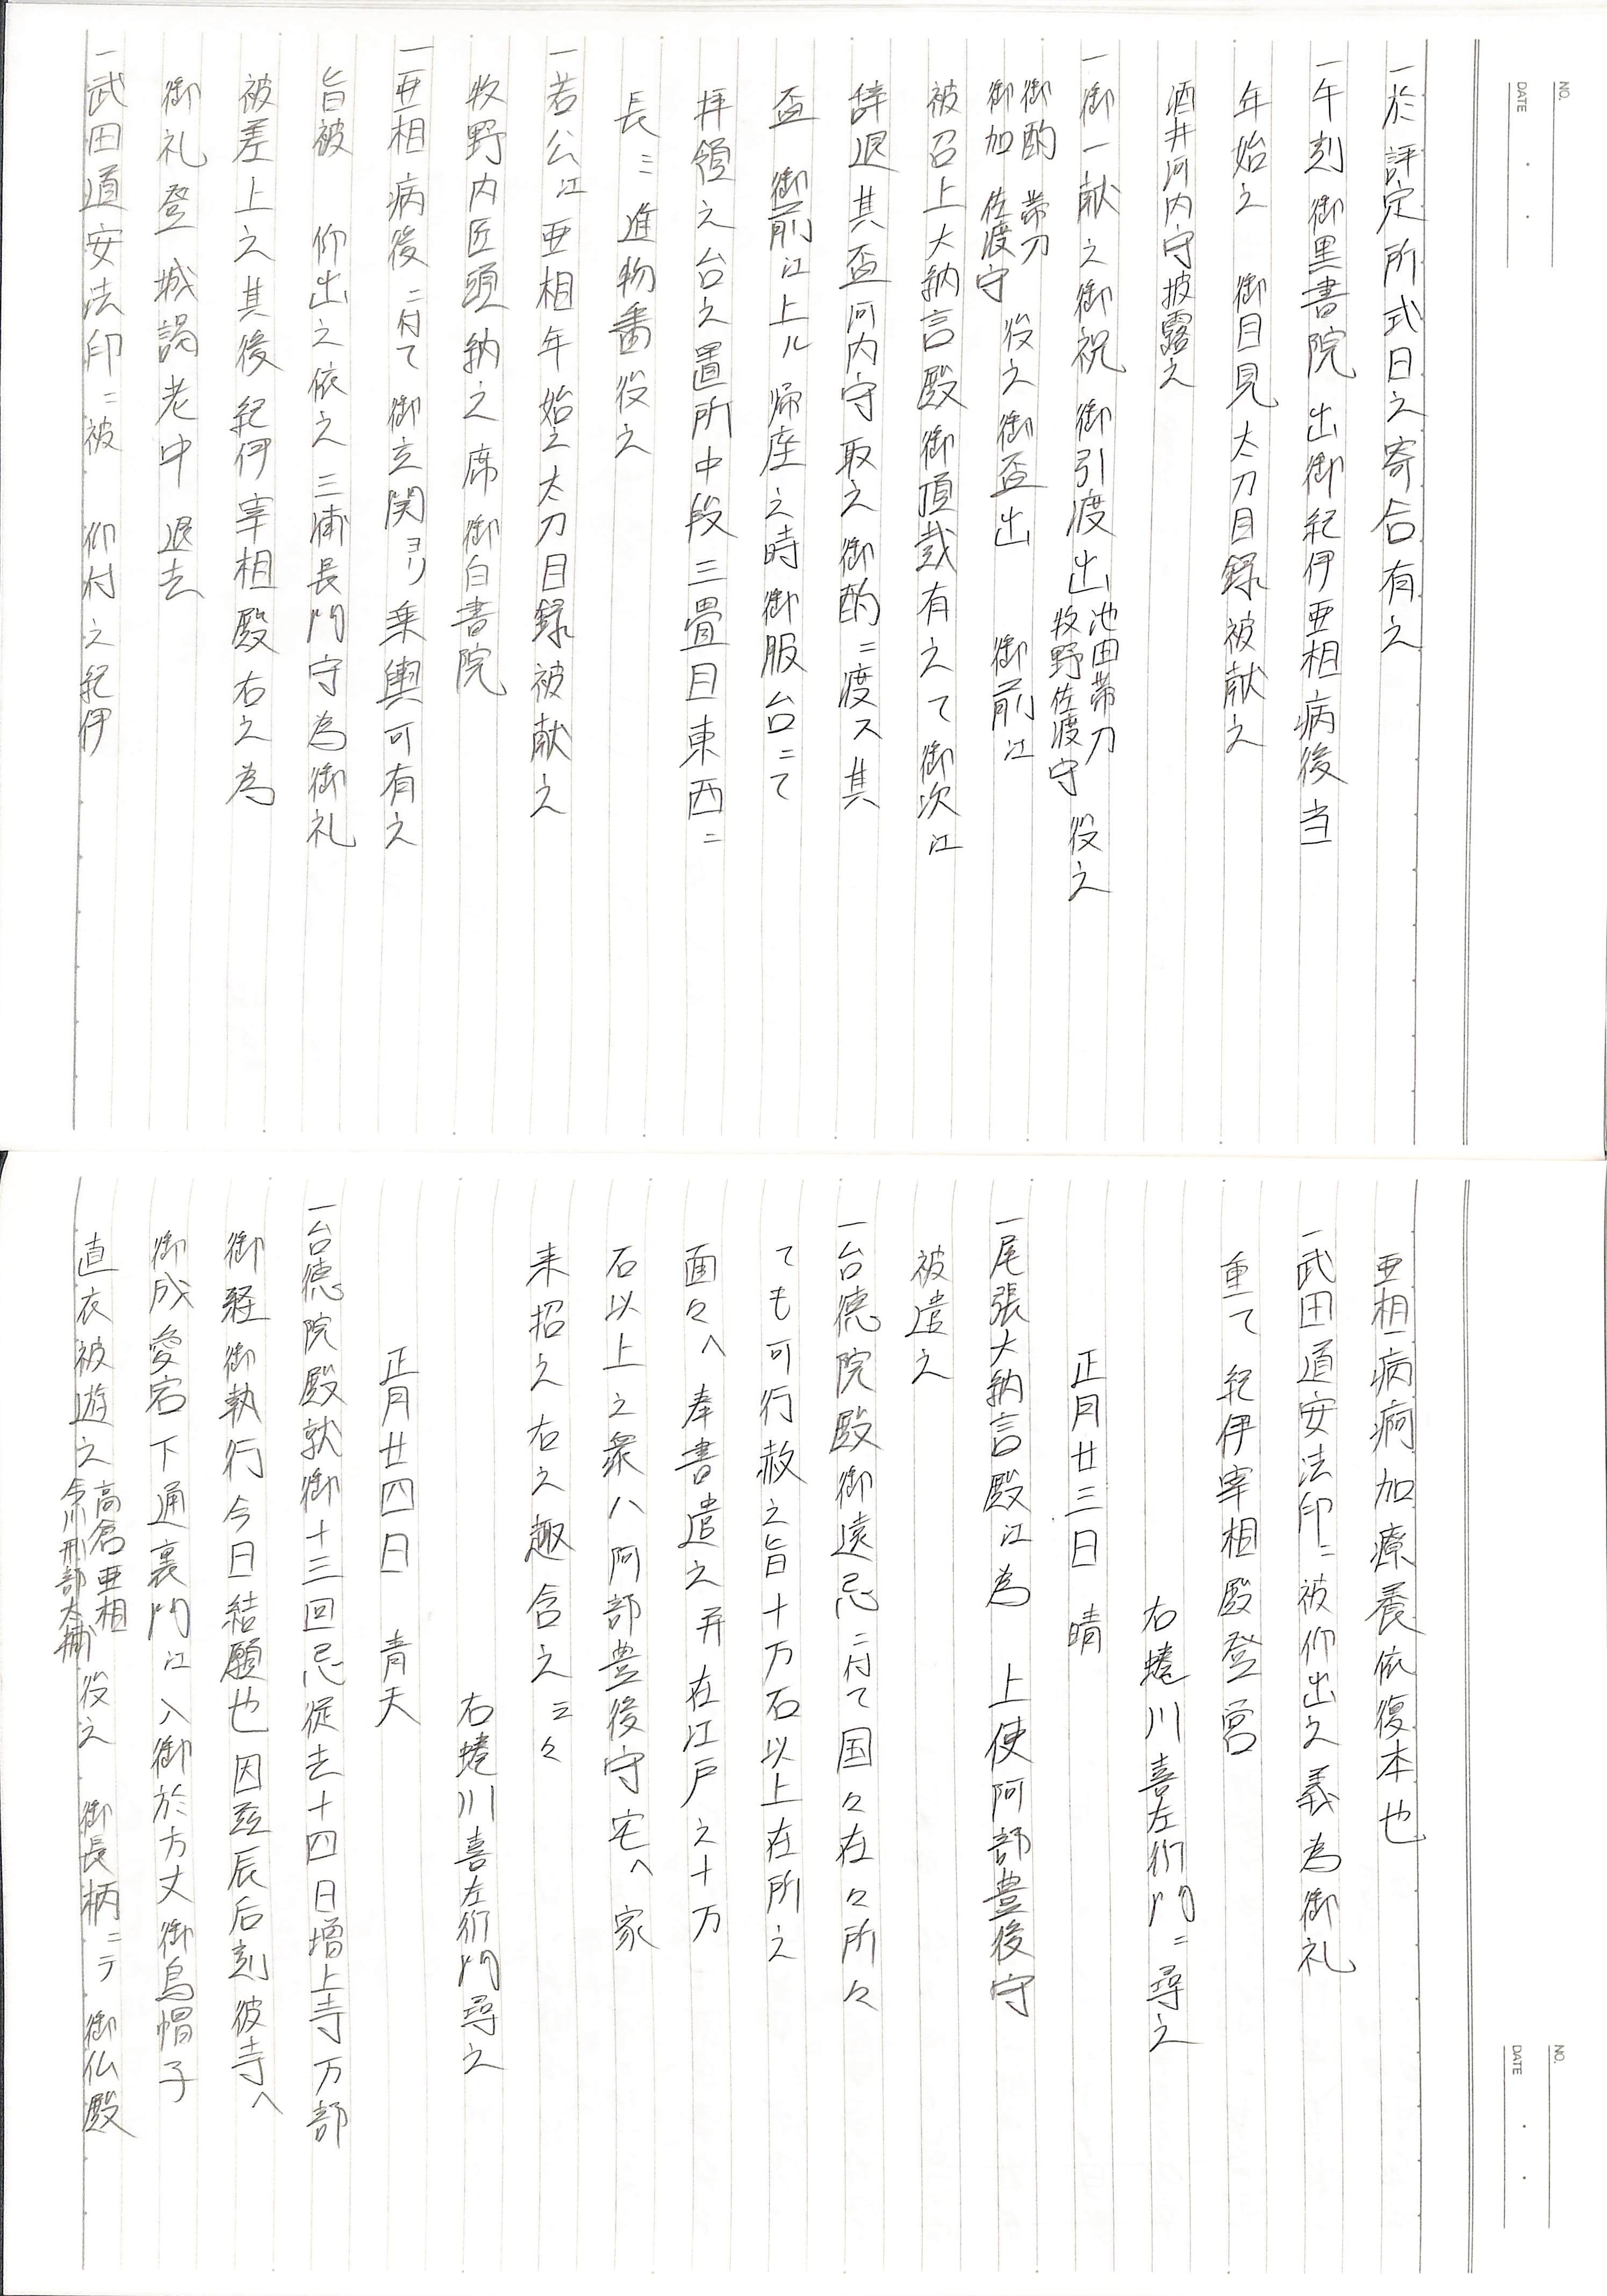 NO.
DATE
一於評定所式日之寄合有之
一午刻御黒書院出御紀伊亜相病後当
年始之 御目見太刀目録被献之
酒井河内守披露之
一御一献之御祝御引渡出 池田帯刀 牧野佐渡守 役之
御酌 帯刀 御加 佐渡守 役之御盃出 御前江
被召上大納言殿御頂戴有之て御次江
辞退其盃河内守取之御酌ニ渡ス其
盃 御前江上ル帰座之時御服台ニて
拝領之台之置所中段三畳目東西ニ
長ニ進物番役之
一若公江亜相年始之太刀目録被献之
牧野内匠頭納之席御白書院
一亜相病後ニ付て御玄関ヨリ乗輿可有之
旨被 仰出之依之三浦長門守為御礼
被差上之其後紀伊宰相殿右之為
御礼登城謁老中退去
一武田道安法印ニ被 仰付之紀伊
NO.
DATE
亜相病痾加療養依復本也
一武田道安法印ニ被仰出之義為御礼
重て紀伊宰相殿登営
右蜷川喜左衛門ニ尋之
正月廿三日 晴
一尾張大納言殿江為 上使阿部豊後守
被遣之
一台徳院殿御遠忌ニ付て国々在々所々
ても可行赦之旨十万石以上在所之
面々へ奉書遣之并在江戸之十万
石以上之衆ハ阿部豊後守宅へ家
来招之右之趣含之云々
右蜷川喜左衛門尋之
正月廿四日 青天
一台徳院殿就御十三回忌従去十四日増上寺万部
御経御執行今日結願也因茲辰后刻彼寺へ
御成愛宕下通裏門江入御於方丈御烏帽子
直衣被遊之 高倉亜相 今川刑部太輔 役之 御長柄ニテ御仏殿